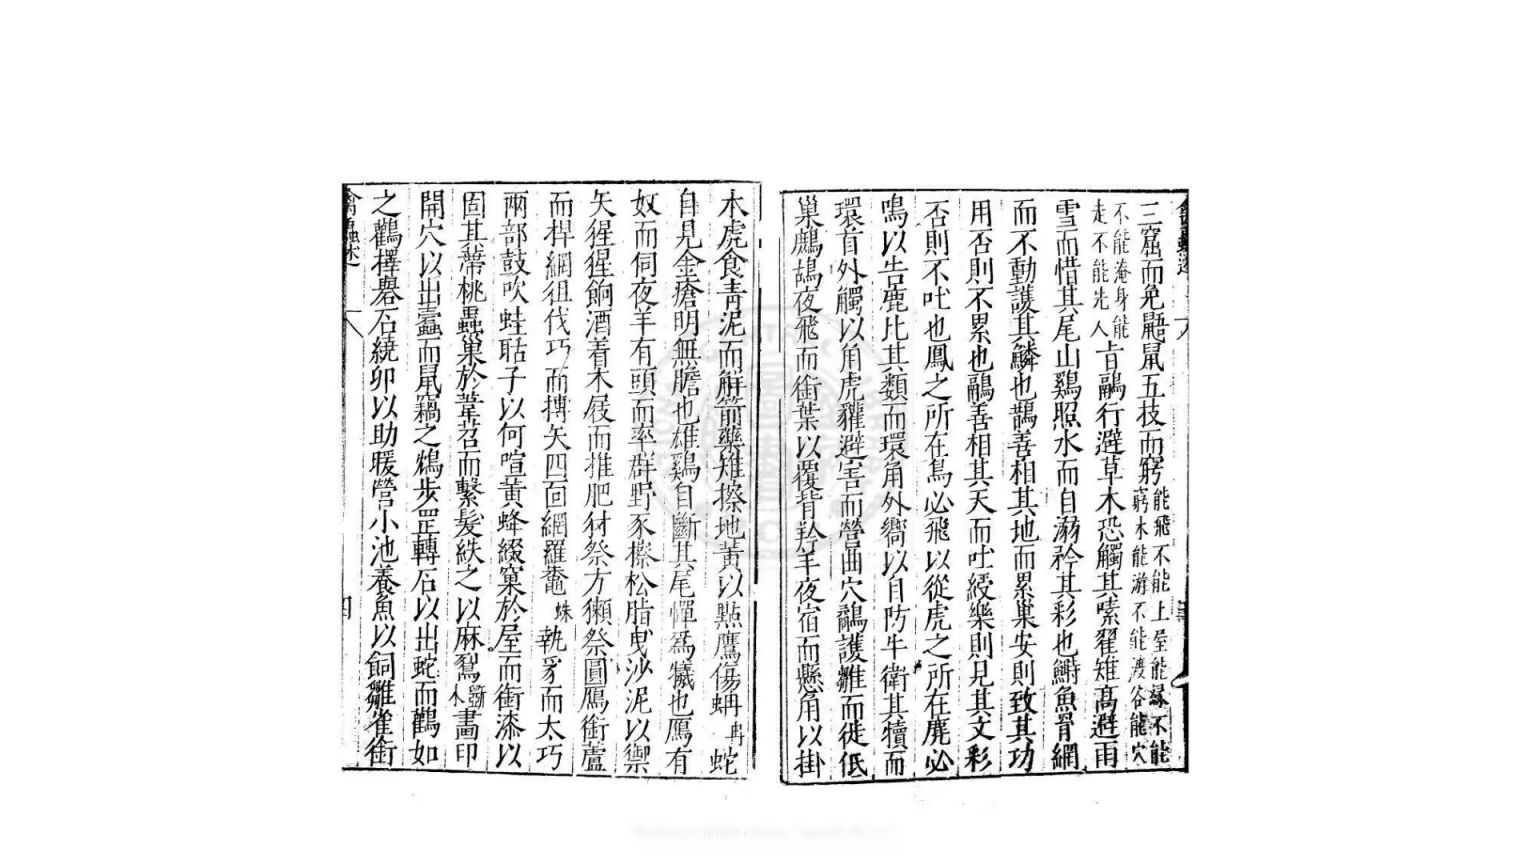 三窟而免鼫鼠五技而窮能飛不能上屋能緣不能
窮木能游不能渡谷能穴
不能淹身能
走不能先人
肯鸓行避草木恐觸其嗉翟雉高避雨
雪而惜其尾山鷄照水而自溺矜其彩也鱘魚骨網
而不動護其鱗也鵲善相其地而累巢安則致其功
用否則不累也鷊善相其天而吐綬樂則見其文彩
否則不吐也鳳之所在鳥必飛以從虎之所在麂必
鳴以告鹿比其類而環角外嚮以自防牛衛其犢而
環首外觸以角虎貛避害而營曲穴鷊護雛而徙低
巢鷓鴣夜飛而銜葉以覆背羚羊夜宿而懸角以掛
木虎食青泥而解箭藥雉擦地黃以點鷹傷蚺冉蛇
自見金瘡明無膽也雄鷄自斷其尾憚為犧也鴈有
奴而伺夜羊有頭而率群野豕擦松脂曳沙泥以禦
矢猩猩餉酒着木屐而推肥豺祭方獺祭圓鴈銜蘆
而桿網狙伐巧而搏矢四面網羅鼄蛛執豸而太巧
兩部鼓吹蛙聒子以何喧黃蜂綴窠於屋而銜漆以
固其蔕桃蟲巢於葦苕而繫髮紩之以麻鴷斵木畵印
開穴以出蠧而鼠竊之鴆步罡轉石以出蛇而鸛如
之鸛擇礜石繞卵以助暖營小池養魚以飼雛雀銜
禽蟲述
四